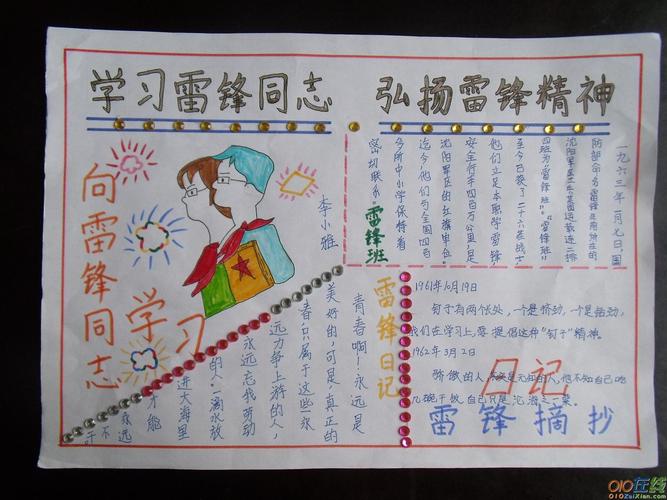 学习雷锋同志
弘扬雷锋精神
向雷锋同志
学习
李小雅
一九六三年一月七日,国
防部命名雷锋生前所在的
四班为"雷锋班"。"雷锋班"
至今已换了二十六茬战士
他们立足本职学雷锋
安全行车四百万公里,是
沈阳军区的红旗单位
迄今,他们与全国四百
多所中小学保持着
密切联系。
雷锋班
雷锋日记
青春啊!永远是
美好的,可是真正的
春,只属于这些永
远力争上游的人,
永远忘我劳动
的人。一滴水放
进大海里
才能
永远
不
干
1961年10月19日
钉子有两个长处,一个是挤劲,一个是钻劲,
我们在学习上,要提倡这种"钉子"精神。
1962年3月2日
骄傲的人,其实是无知的人,他不知自己吃
几碗干饭,自己只是沧海之一粟。
日记
雷锋摘抄
010在线
010ZaiXian.com